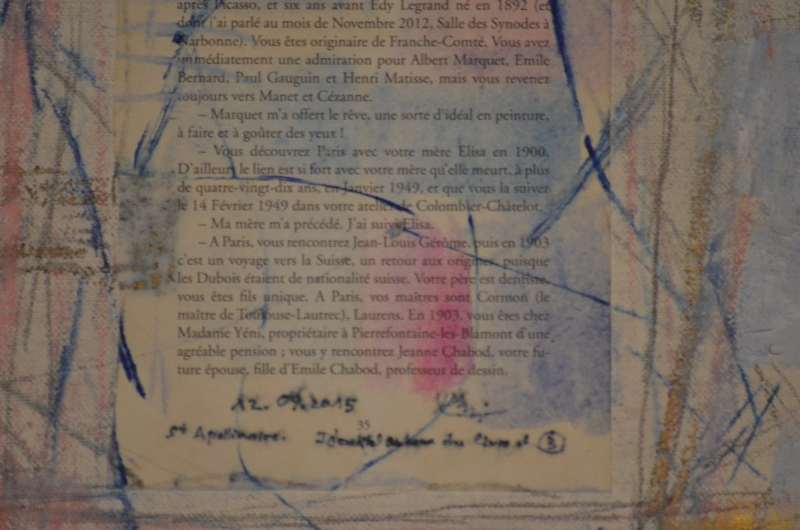 après Picasso, et six ans avant Edy Legrand né en 1892 (et
dont j'ai parlé au mois de Novembre 2012, Salle des Synodes à
Narbonne). Vous êtes originaire de Franche-Comté. Vous avez
immédiatement une admiration pour Albert Marquet, Emile
Bernard, Paul Gauguin et Henri Matisse, mais vous revenez
toujours vers Manet et Cézanne.
– Marquet m'a offert le rêve, une sorte d'idéal en peinture,
à faire et à goûter des yeux !
– Vous découvrez Paris avec votre mère Elisa en 1900.
D'ailleurs le lien est si fort avec votre mère qu'elle meurt, à plus
de quatre-vingt-dix ans, en Janvier 1949, et que vous la suivez
le 14 Février 1949 dans votre atelier de Colombier-Châtelot.
– Ma mère m'a précédé. J'ai suivi Elisa.
– A Paris, vous rencontrez Jean-Louis Gérôme, puis en 1903
c'est un voyage vers la Suisse, un retour aux origines, puisque
les Dubois étaient de nationalité suisse. Votre père est dentiste,
vous êtes fils unique. A Paris, vos maîtres sont Cormon (le
maître de Toulouse-Lautrec), Laurens. En 1903, vous êtes chez
Madame Yéni, propriétaire à Pierrefontaine-les-Blamont d'une
agréable pension ; vous y rencontrez Jeanne Chabod, votre fu-
ture épouse, fille d'Emile Chabod, professeur de dessin.
12.09.2015
35
St Apollinaire. du 3